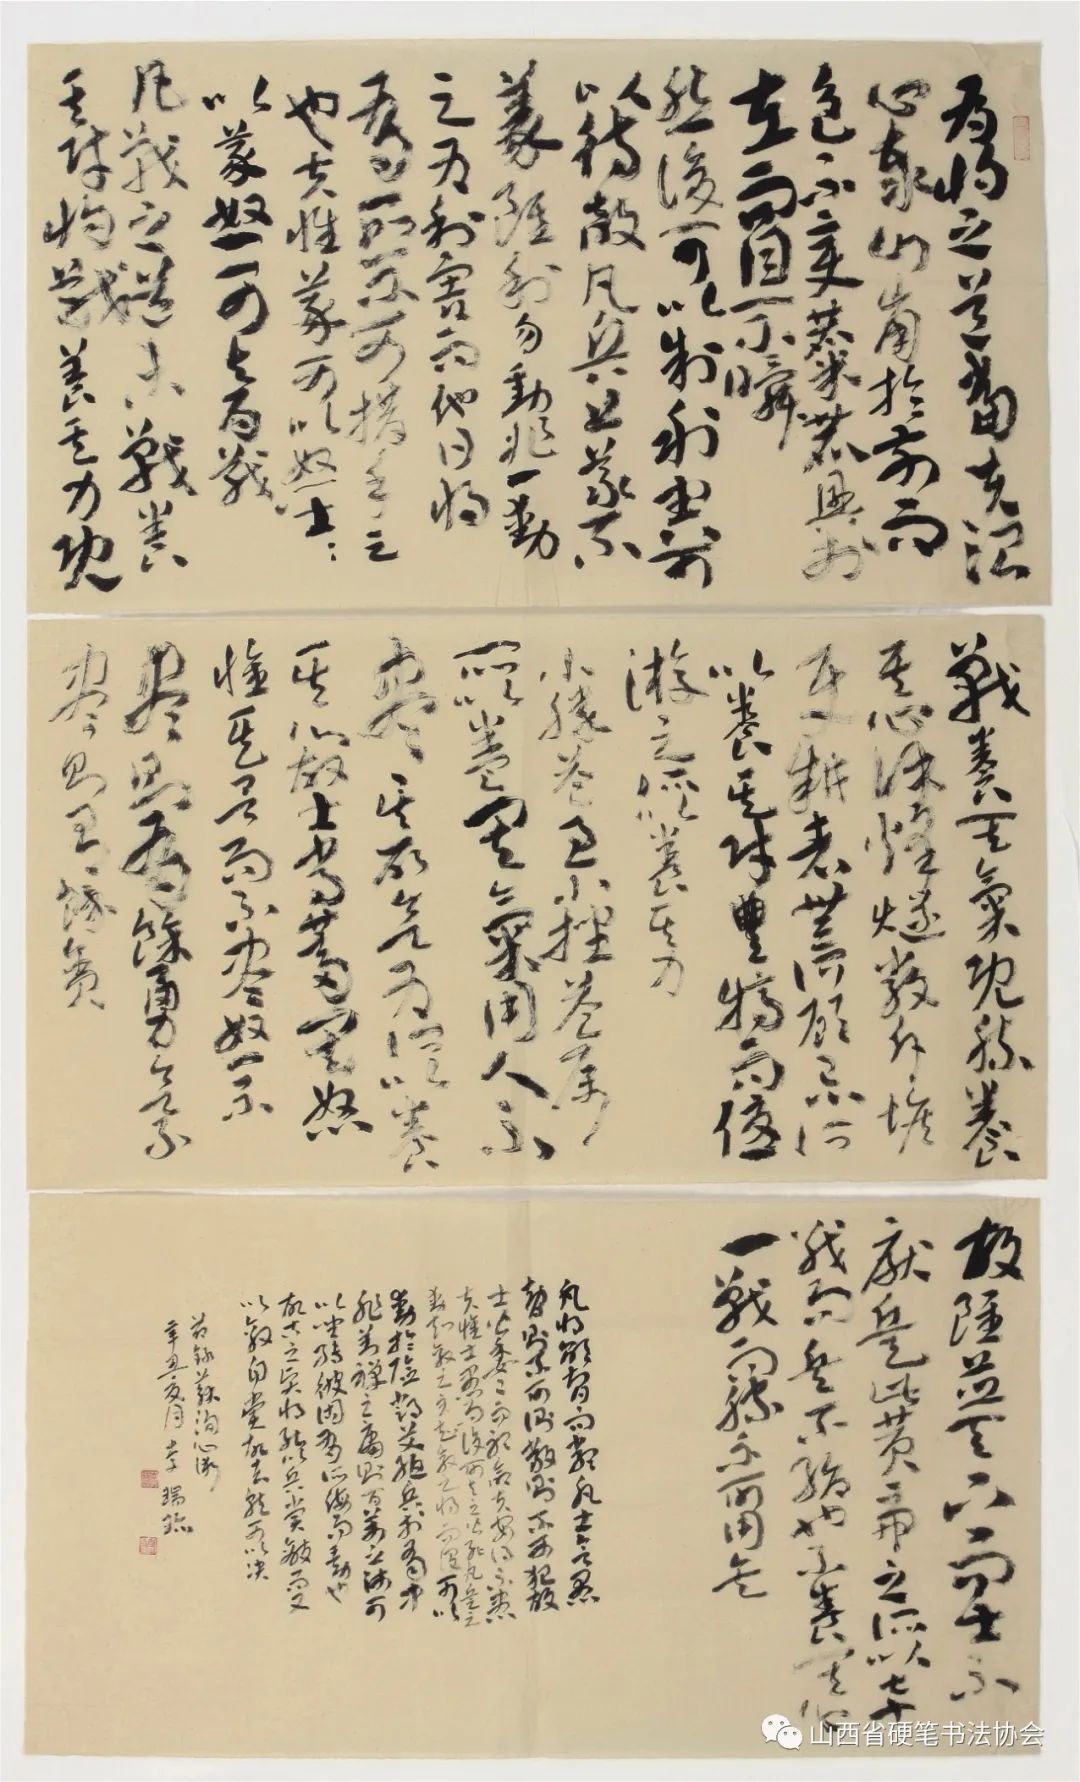 為將之道當先治
心泰山崩於前而
色不變麋鹿興於
左而目不瞬
然後可以制利害可
以待敵凡兵上義不
義雖利勿動非一動
之為利害而他日將
有所不可措手足
也夫惟義可以怒士士
以義怒可與百戰
凡戰之道未戰養
其財將戰養其力既
戰養其氣既勝養
其心謹烽燧嚴斥堠
使耕者無所顧忌所
以養其財豐犒而優
游之所以養其力
小勝益急小挫益厲
所以養其氣用人不
盡其所欲為所以養
其心故士常蓄其怒
懷其欲而不盡怒不
盡則有餘勇欲不
盡則有餘貪
故雖並天下而士不
厭兵此黃帝之所以七十
戰而兵不殆也不養其心
一戰而勝不可用矣
凡將欲智而嚴凡士欲愚
智則不可測嚴則不可犯故
士皆委己而聽命夫安得不愚
夫惟士愚而後可與之皆死凡兵之
動知敵之主知敵之將而後可以
動於險鄧艾縋兵於蜀中
非劉禪之庸則百萬之師可
以坐縛彼固有所侮而動也
故古之賢將能以兵嘗敵而又
以敵自嘗故去就可以決
節錄蘇洵心術
辛丑夏月李瑞
山西省硬笔书法协会